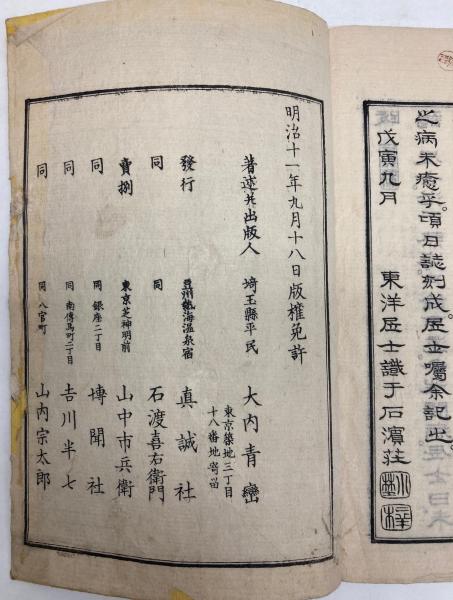 之病未癒乎頃日誌刻成居士囑余記之
戊寅九月　東洋居士識于石濱莊
明治十一年九月十八日版權免許
著述并出版人　埼玉縣平民　大内青巒
東京築地三丁目
十八番地寄留
發行　豆州熱海温泉宿　真誠社
同　同　石渡喜右衛門
賣捌　東京芝神明前　山中市兵衛
同　同銀座二丁目　博聞社
同　同南傳馬町二丁目　吉川半七
同　同八官町　山内宗太郎